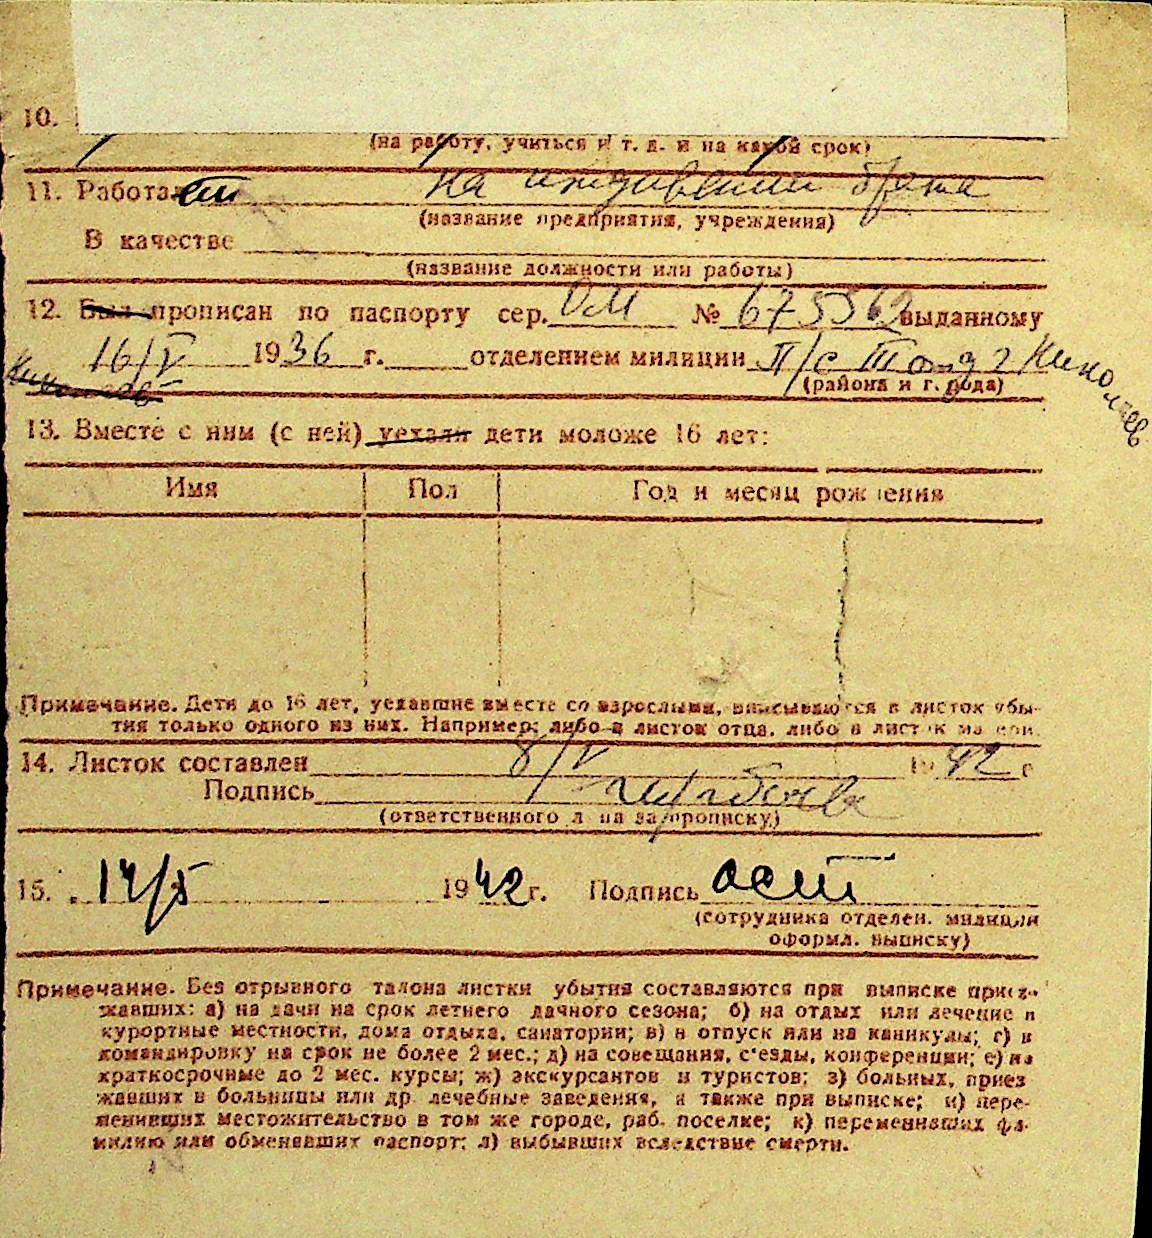 10.
(на работу, учиться и т. д. и на какой срок)
11. Работает на иждивении брата
(название предприятия, учреждения)
В качестве
(название должности или работы)
12. Был прописан по паспорту сер. ОМ № 675562 выданному
16/V 1936 г. отделением милиции П/с г Николаев
(района и г. рода)
13. Вместе с ним (с ней) уехали дети моложе 16 лет:
Имя Пол Год и месяц рождения
Примечание. Дети до 16 лет, уехавшие вместе со взрослыми, вписываются в листок убы-
тия только одного из них. Например: либо в листок отца, либо в листок матери.
14. Листок составлен 8/V 1942 г
Подпись
(ответственного л на за прописку)
15. 14/5 1942 г. Подпись
(сотрудника отделен. милиции
оформл. выписку)
Примечание. Без отрывного талона листки убытия составляются при выписке приез-
жавших: а) на дачи на срок летнего дачного сезона; б) на отдых или лечение в
курортные местности, дома отдыха, санатории; в) в отпуск или на каникулы; г) в
командировку на срок не более 2 мес.; д) на совещания, с'езды, конференции; е) на
краткосрочные до 2 мес. курсы; ж) экскурсантов и туристов; з) больных, приез
жавших в больницы или др. лечебные заведения, а также при выписке; и) пере-
менивших местожительство в том же городе, раб. поселке; к) переменивших фа-
милию или обменявших паспорт; л) выбывших вследствие смерти.